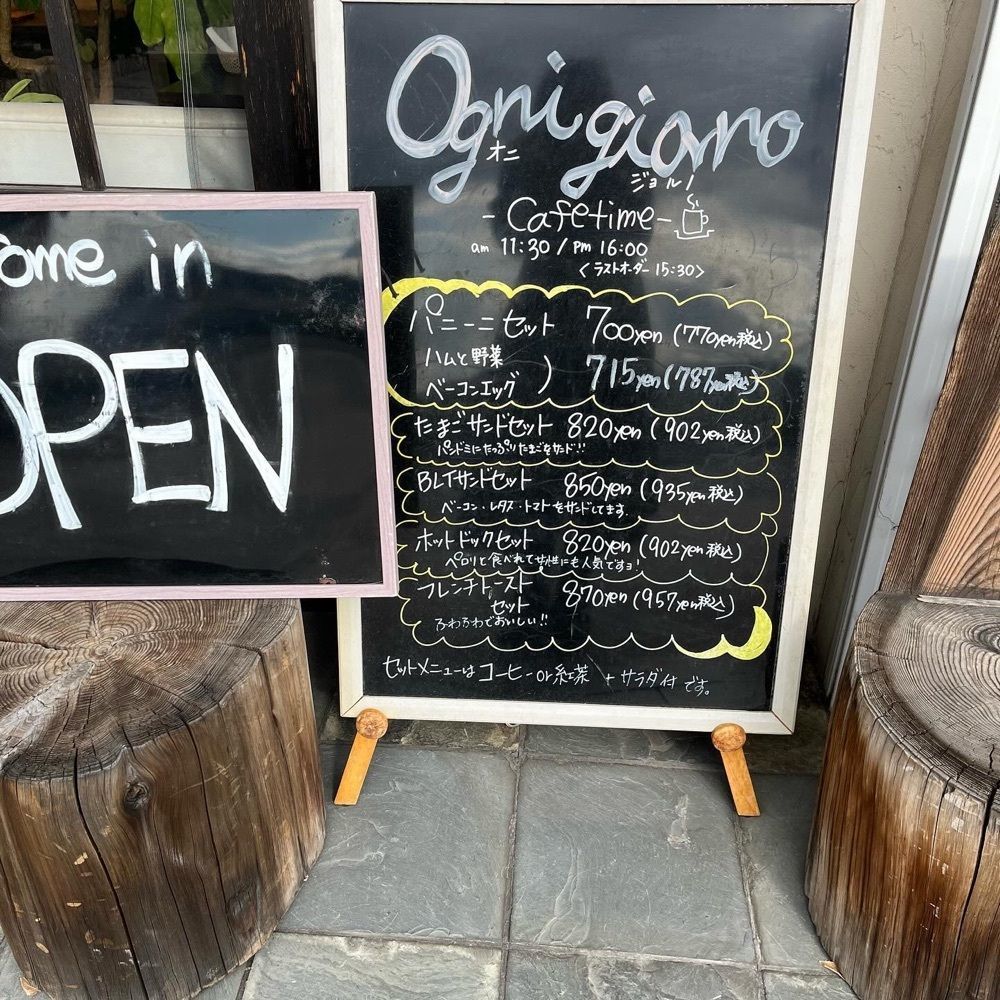 ome in
OPEN
Ognigiorno
オニ
ジョルノ
- Cafetime -
am 11:30 / pm 16:00
<ラストオーダー 15:30>
パニーニセット 700yen (770yen税込)
ハムと野菜
ベーコンエッグ ) 715yen (787yen税込)
たまごサンドセット 820yen (902yen税込)
パンドミにたっぷりたまごをサンド!!
BLTサンドセット 850yen (935yen税込)
ベーコン・レタス・トマトをサンドしてます。
ホットドックセット 820yen (902yen税込)
ペロリと食べれて女性にも人気ですョ!
フレンチトースト
セット 870yen (957yen税込)
ふわふわでおいしい!!
セットメニューはコーヒー or 紅茶 + サラダ付です。